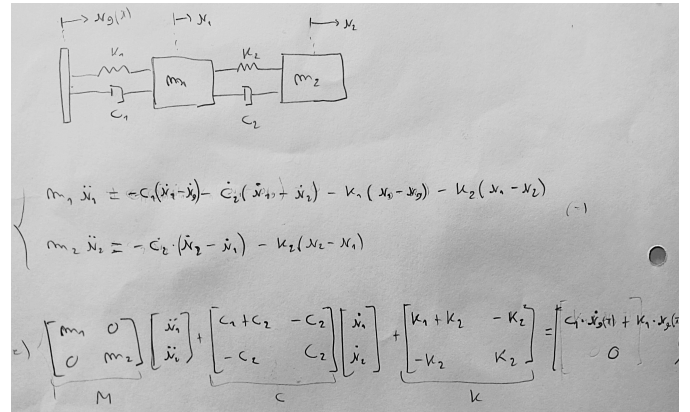 x_g(t) x_1 x_2
k_1 k_2
m_1 m_2
c_1 c_2
m_1 ẍ_1 = -c_1(ẋ_1-ẋ_g) - c_2(ẋ_1 - ẋ_2) - k_1(x_1-x_g) - k_2(x_1-x_2)
(-)
m_2 ẍ_2 = -c_2·(ẋ_2-ẋ_1) - k_2(x_2-x_1)
[m_1 0; 0 m_2] [ẍ_1; ẍ_2] + [c_1+c_2 -c_2; -c_2 c_2] [ẋ_1; ẋ_2] + [k_1+k_2 -k_2; -k_2 k_2] = [c_1·ẋ_g(t) + k_1·x_g(t); 0]
M C K